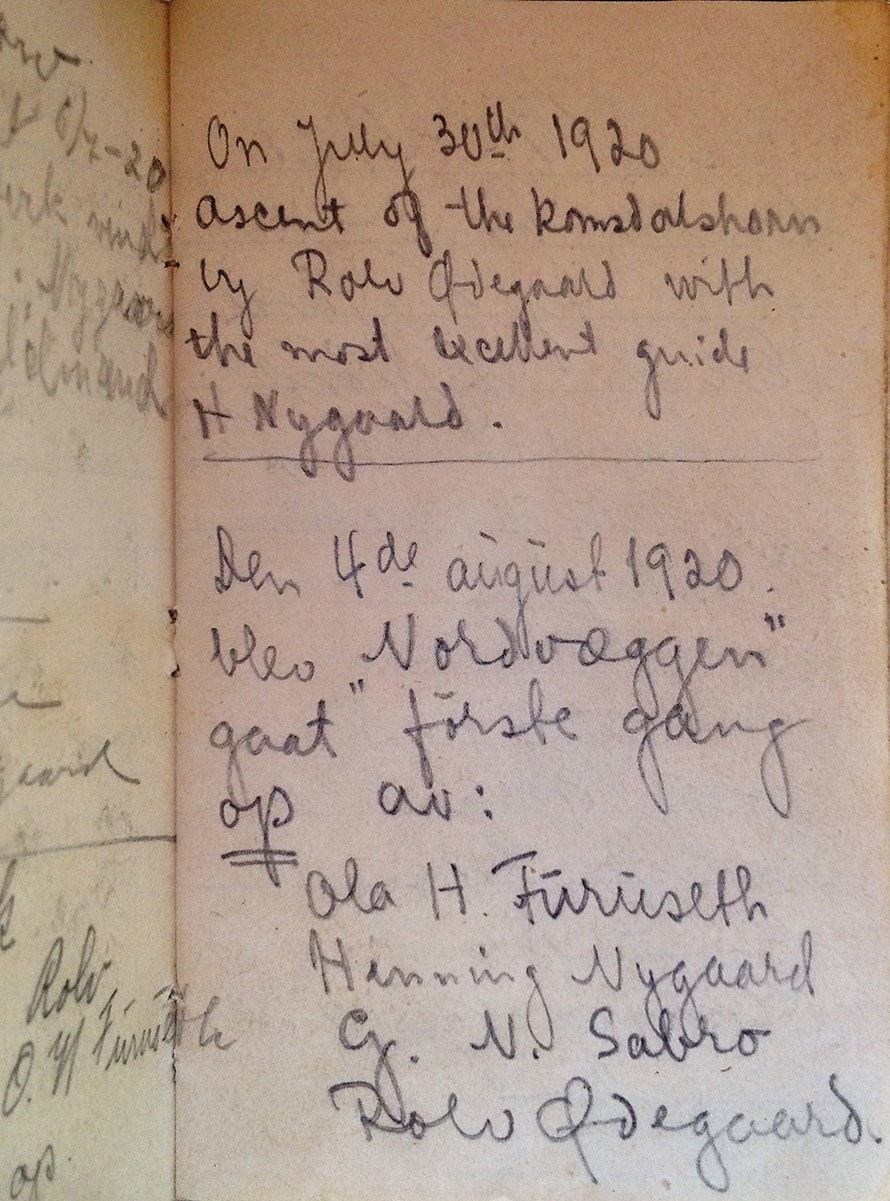 6/7-20
Rolv
op.
On July 30th 1920
ascent of the Romsdalshorn
by Rolv Ødegaard with
the most excellent guide
H Nygaard.
Den 4de august 1920.
blev „Nordvæggen"
gaat" første gang
op av:
Ola H. Furuseth
Henning Nygaard
G. N. Sabro
Rolv Ødegaard.